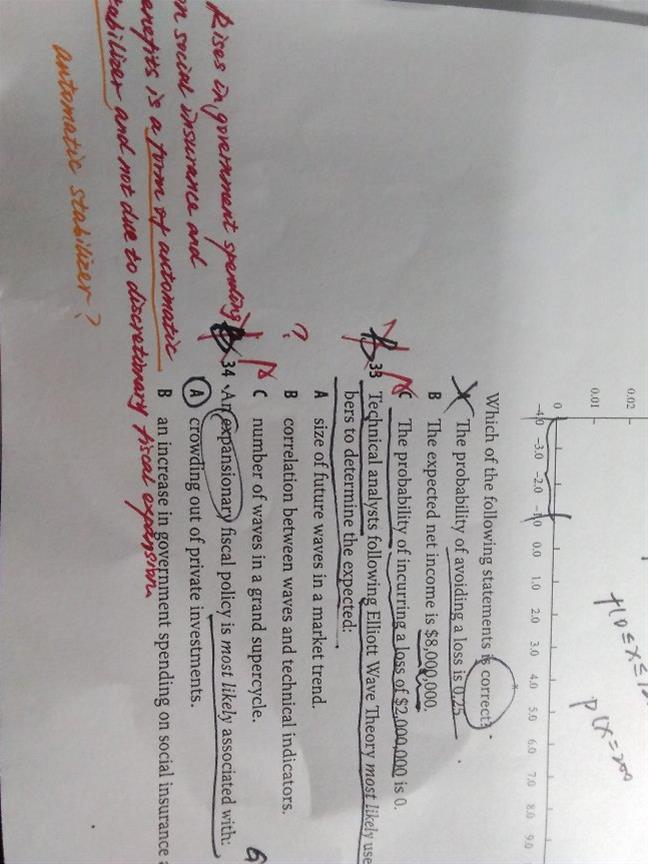 0.02
0.01
0
-4.0 -3.0 -2.0 -1.0 0.0 1.0 2.0 3.0 4.0 5.0 6.0 7.0 8.0 9.0
Which of the following statements is correct?
The probability of avoiding a loss is 0.25.
B The expected net income is $8,000,000.
C The probability of incurring a loss of $2,000,000 is 0.
33 Technical analysts following Elliott Wave Theory most likely use
bers to determine the expected:
A size of future waves in a market trend.
B correlation between waves and technical indicators.
?
C number of waves in a grand supercycle.
34 An expansionary fiscal policy is most likely associated with:
A crowding out of private investments.
B an increase in government spending on social insurance
Rises in government spending
on social insurance and
benefits is a form of automatic
stabilizer and not due to discretionary fiscal expansion
automatic stabilizer?